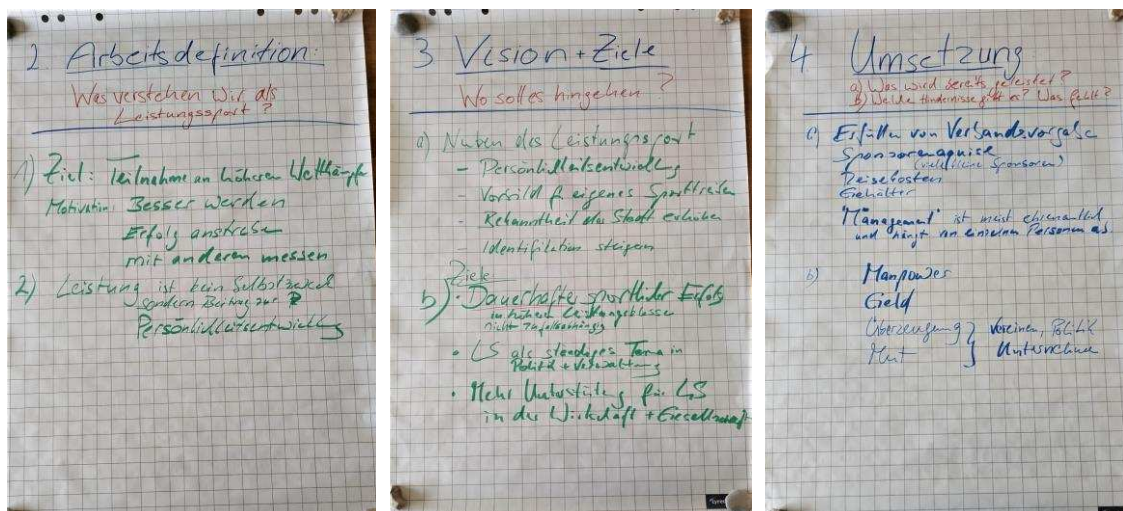 2. Arbeitsdefinition:
Was verstehen wir als
Leistungssport?
1) Ziel: Teilnahme an höheren Wettkämpfe
Motivation: Besser werden
Erfolg anstreben
mit anderen messen
2) Leistung ist kein Selbstzweck
sondern Beitrag zur
Persönlichkeitsentwicklung
3 Vision + Ziele
Wo soll es hingehen?
a) Nutzen des Leistungssport
- Persönlichkeitsentwicklung
Vorbild f. eigenes Sporttreiben
- Bekanntheit der Stadt erhöhen
Identifikation steigern
Ziele
b) • Dauerhafter sportlicher Erfolg
in höheren Leistungsklassen
nicht zufallsabhängig
• LS als ständiges Thema in
Politik + Verwaltung
• Mehr Unterstützung für LS
in der Wirtschaft + Gesellschaft
4 Umsetzung
a) Was wird bereits geleistet?
b) Welche Hindernisse gibt es? Was fehlt?
a) Erfüllen von Verbandsvorgabe
Sponsorenaquise
(viele kleine Sponsoren)
Reisekosten
Gehälter
"Management" ist meist ehrenamtlich
und hängt an einzelnen Personen ab.
b) Manpower
Geld
Überzeugung } Vereinen, Politik
Mut } Unternehmen